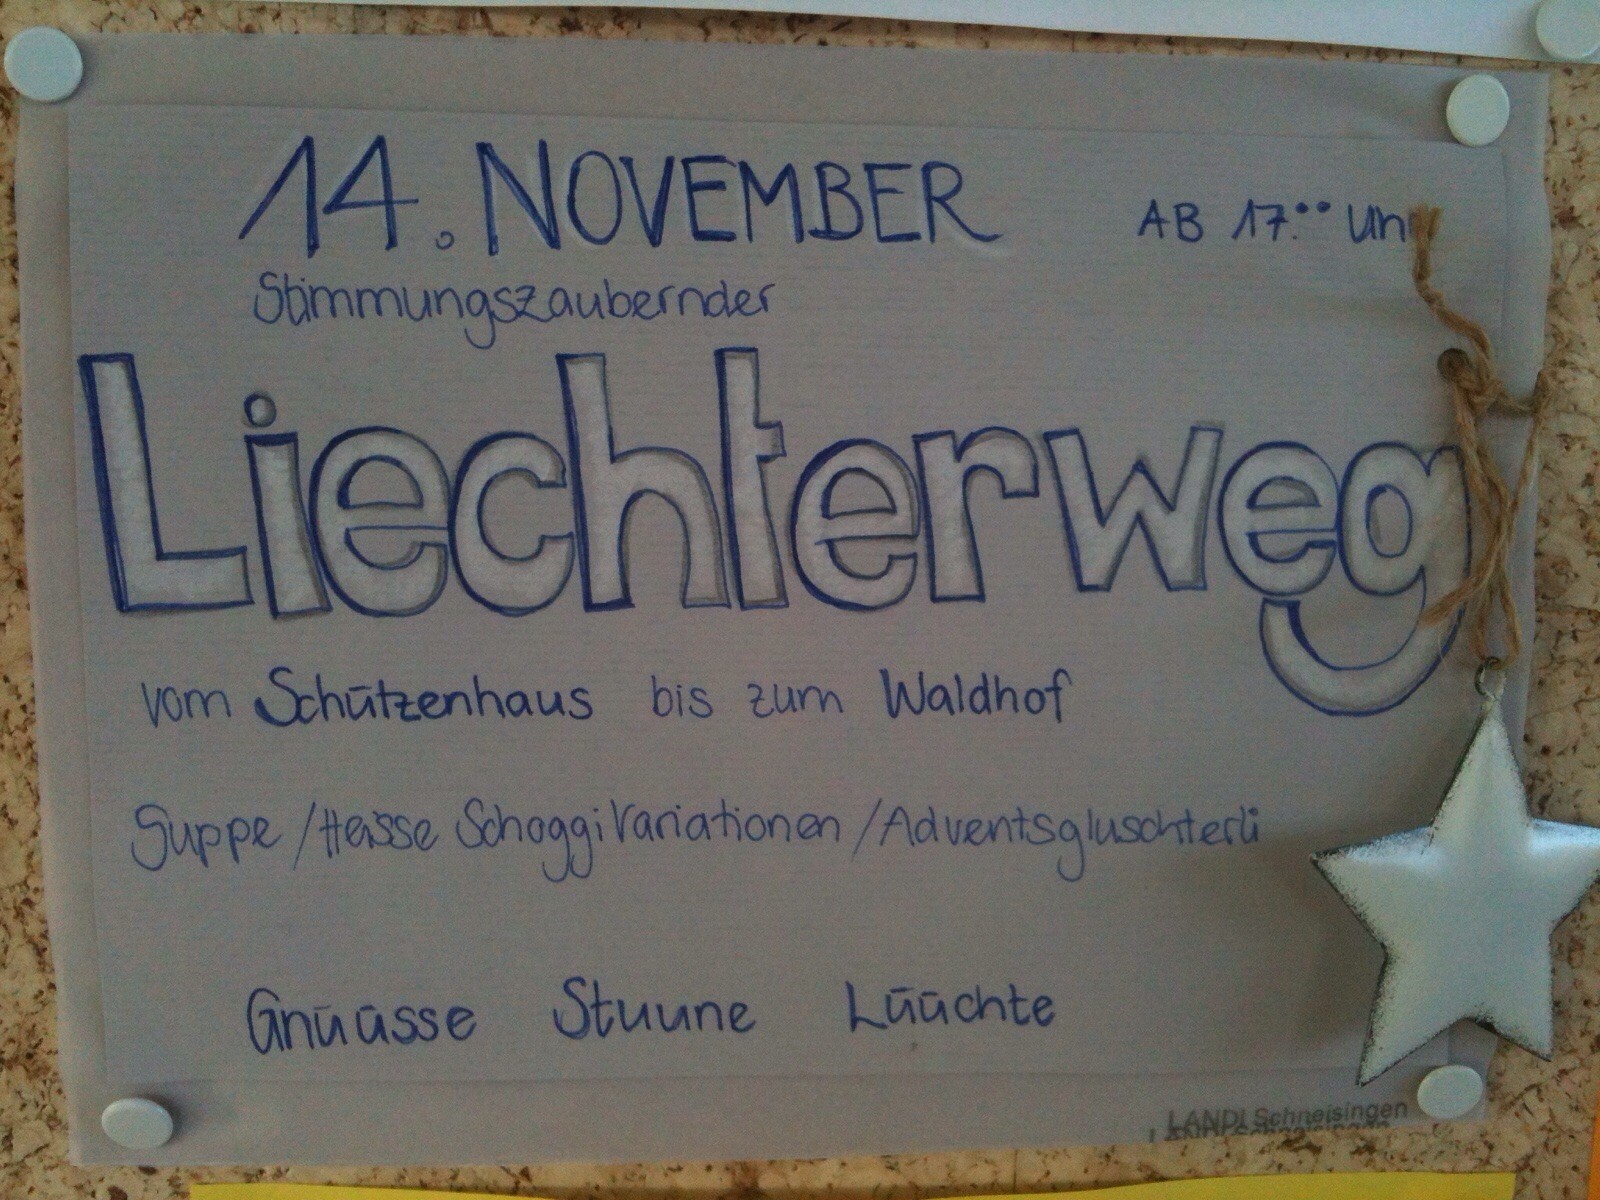 14. NOVEMBER AB 17.°° Uhr
Stimmungszaubernder
Liechterweg
vom Schützenhaus bis zum Waldhof
Suppe / Heisse Schoggi Variationen / Adventsgluschterli
Gnüüsse Stuune Lüüchte
LANDI Schneisingen
LANDI Schneisingen